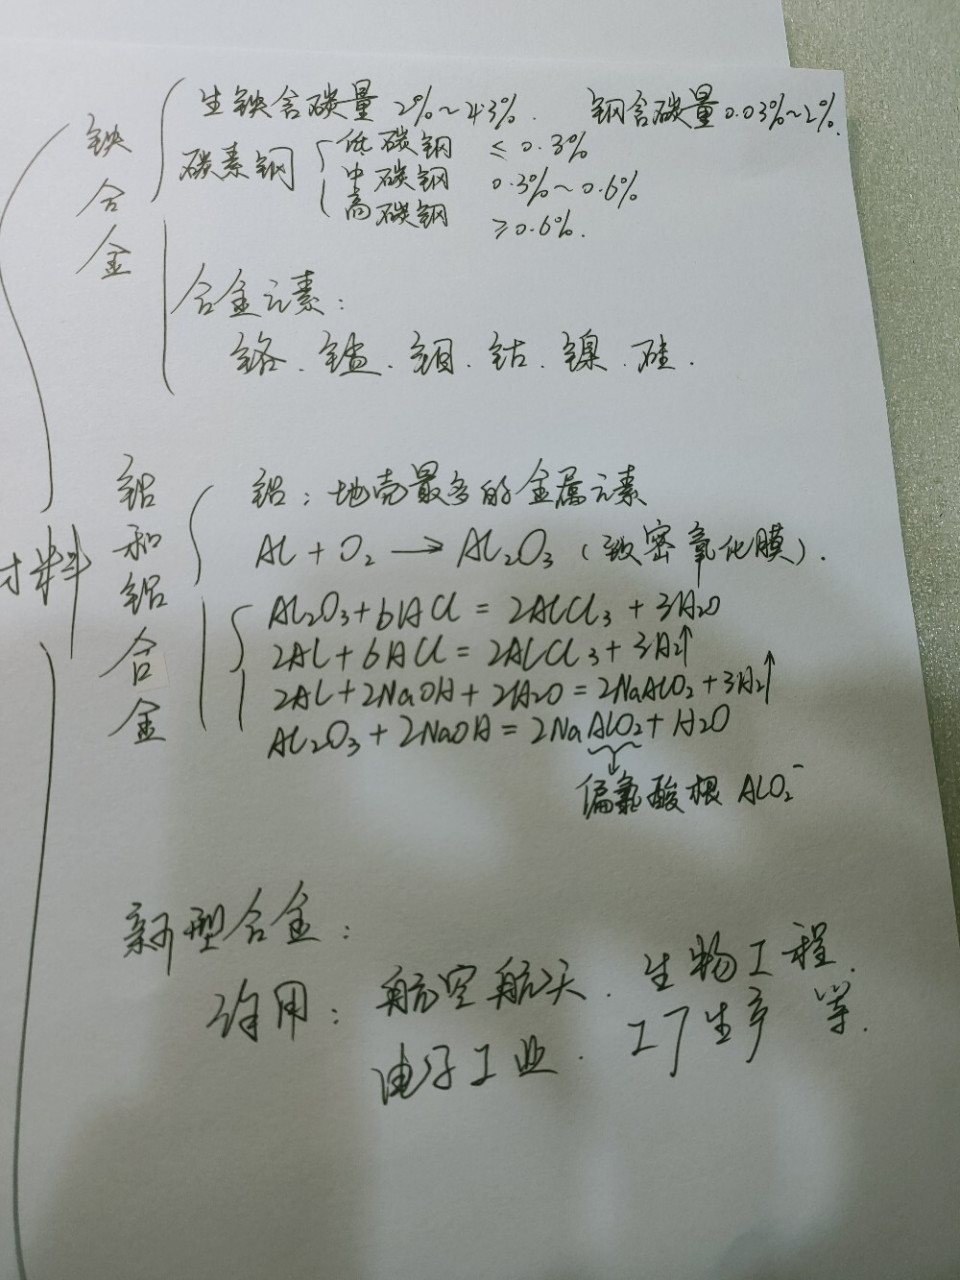 材料
铁合金
生铁含碳量 2%~4.3%. 钢含碳量0.03%~2%.
碳素钢
低碳钢 ≤0.3%
中碳钢 0.3%~0.6%
高碳钢 ≥0.6%.
合金元素:
铬、锰、钼、钴、镍、硅.
铝和铝合金
铝: 地壳最多的金属元素
Al + O₂ → Al₂O₃ (致密氧化膜).
Al₂O₃+6HCl = 2AlCl₃ + 3H₂O
2Al+6HCl = 2AlCl₃+3H₂↑
2Al+2NaOH+2H₂O=2NaAlO₂+3H₂↑
Al₂O₃+2NaOH=2NaAlO₂+H₂O
偏氯酸根 AlO₂⁻
新型合金:
作用: 航空航天、生物工程、
电子工业、工厂生产 等.